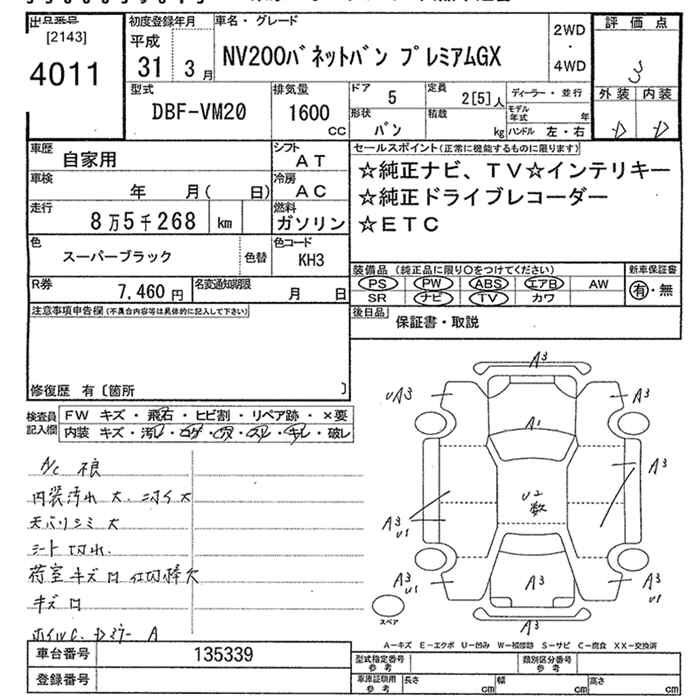 出品番号 初度登録年月 車名・グレード 評価点
[2143] 平成 2WD
4011 31 3月 NV200バネットバン プレミアムGX ・
4WD 3
型式 排気量 ドア 5 定員 2[5]人 ディーラー・並行 外装 内装
DBF-VM20 1600 CC 形状 バン 積載 kg モデル年式 年 ハンドル 左・右 D D
車歴 自家用 シフト AT セールスポイント(正常に機能するものに限ります)
車検 年 月( 日) 冷房 AC ☆純正ナビ、TV☆インテリキー
走行 8万5千268 km 燃料 ガソリン ☆純正ドライブレコーダー
☆ETC
色 スーパーブラック 色替 色コード KH3
装備品(純正品に限り○をつけてください) 新車保証書
R券 7,460円 名変通知期限 月 日 PS PW ABS エアB AW 有・無
SR ナビ TV カワ
注意事項申告欄(不具合内容等は具体的に記入して下さい) 後日品 保証書・取説
修復歴 有〔箇所 〕
検査員記入欄 FW キズ・飛石・ヒビ割・リペア跡・×要
内装 キズ・汚レ・コゲ・穴・スレ・キレ・破レ
A/C 不良
内装汚れ大、ニオイ大
天バリシミ大
シート切れ
荷室キズロ 仕切棒欠
キズロ
A3
UA3 A3
A1
A3
U2
数
A3
U1
A3
U1
A3
A3
U1
スペア
A3
A－キズ E－エクボ U－凹み W－補修跡 S－サビ C－腐食 XX－交換済
車台番号 135339 型式指定番号 参考 類別区分番号 参考
登録番号 車庫証明用 参考 長さ cm 幅 cm 高さ cm